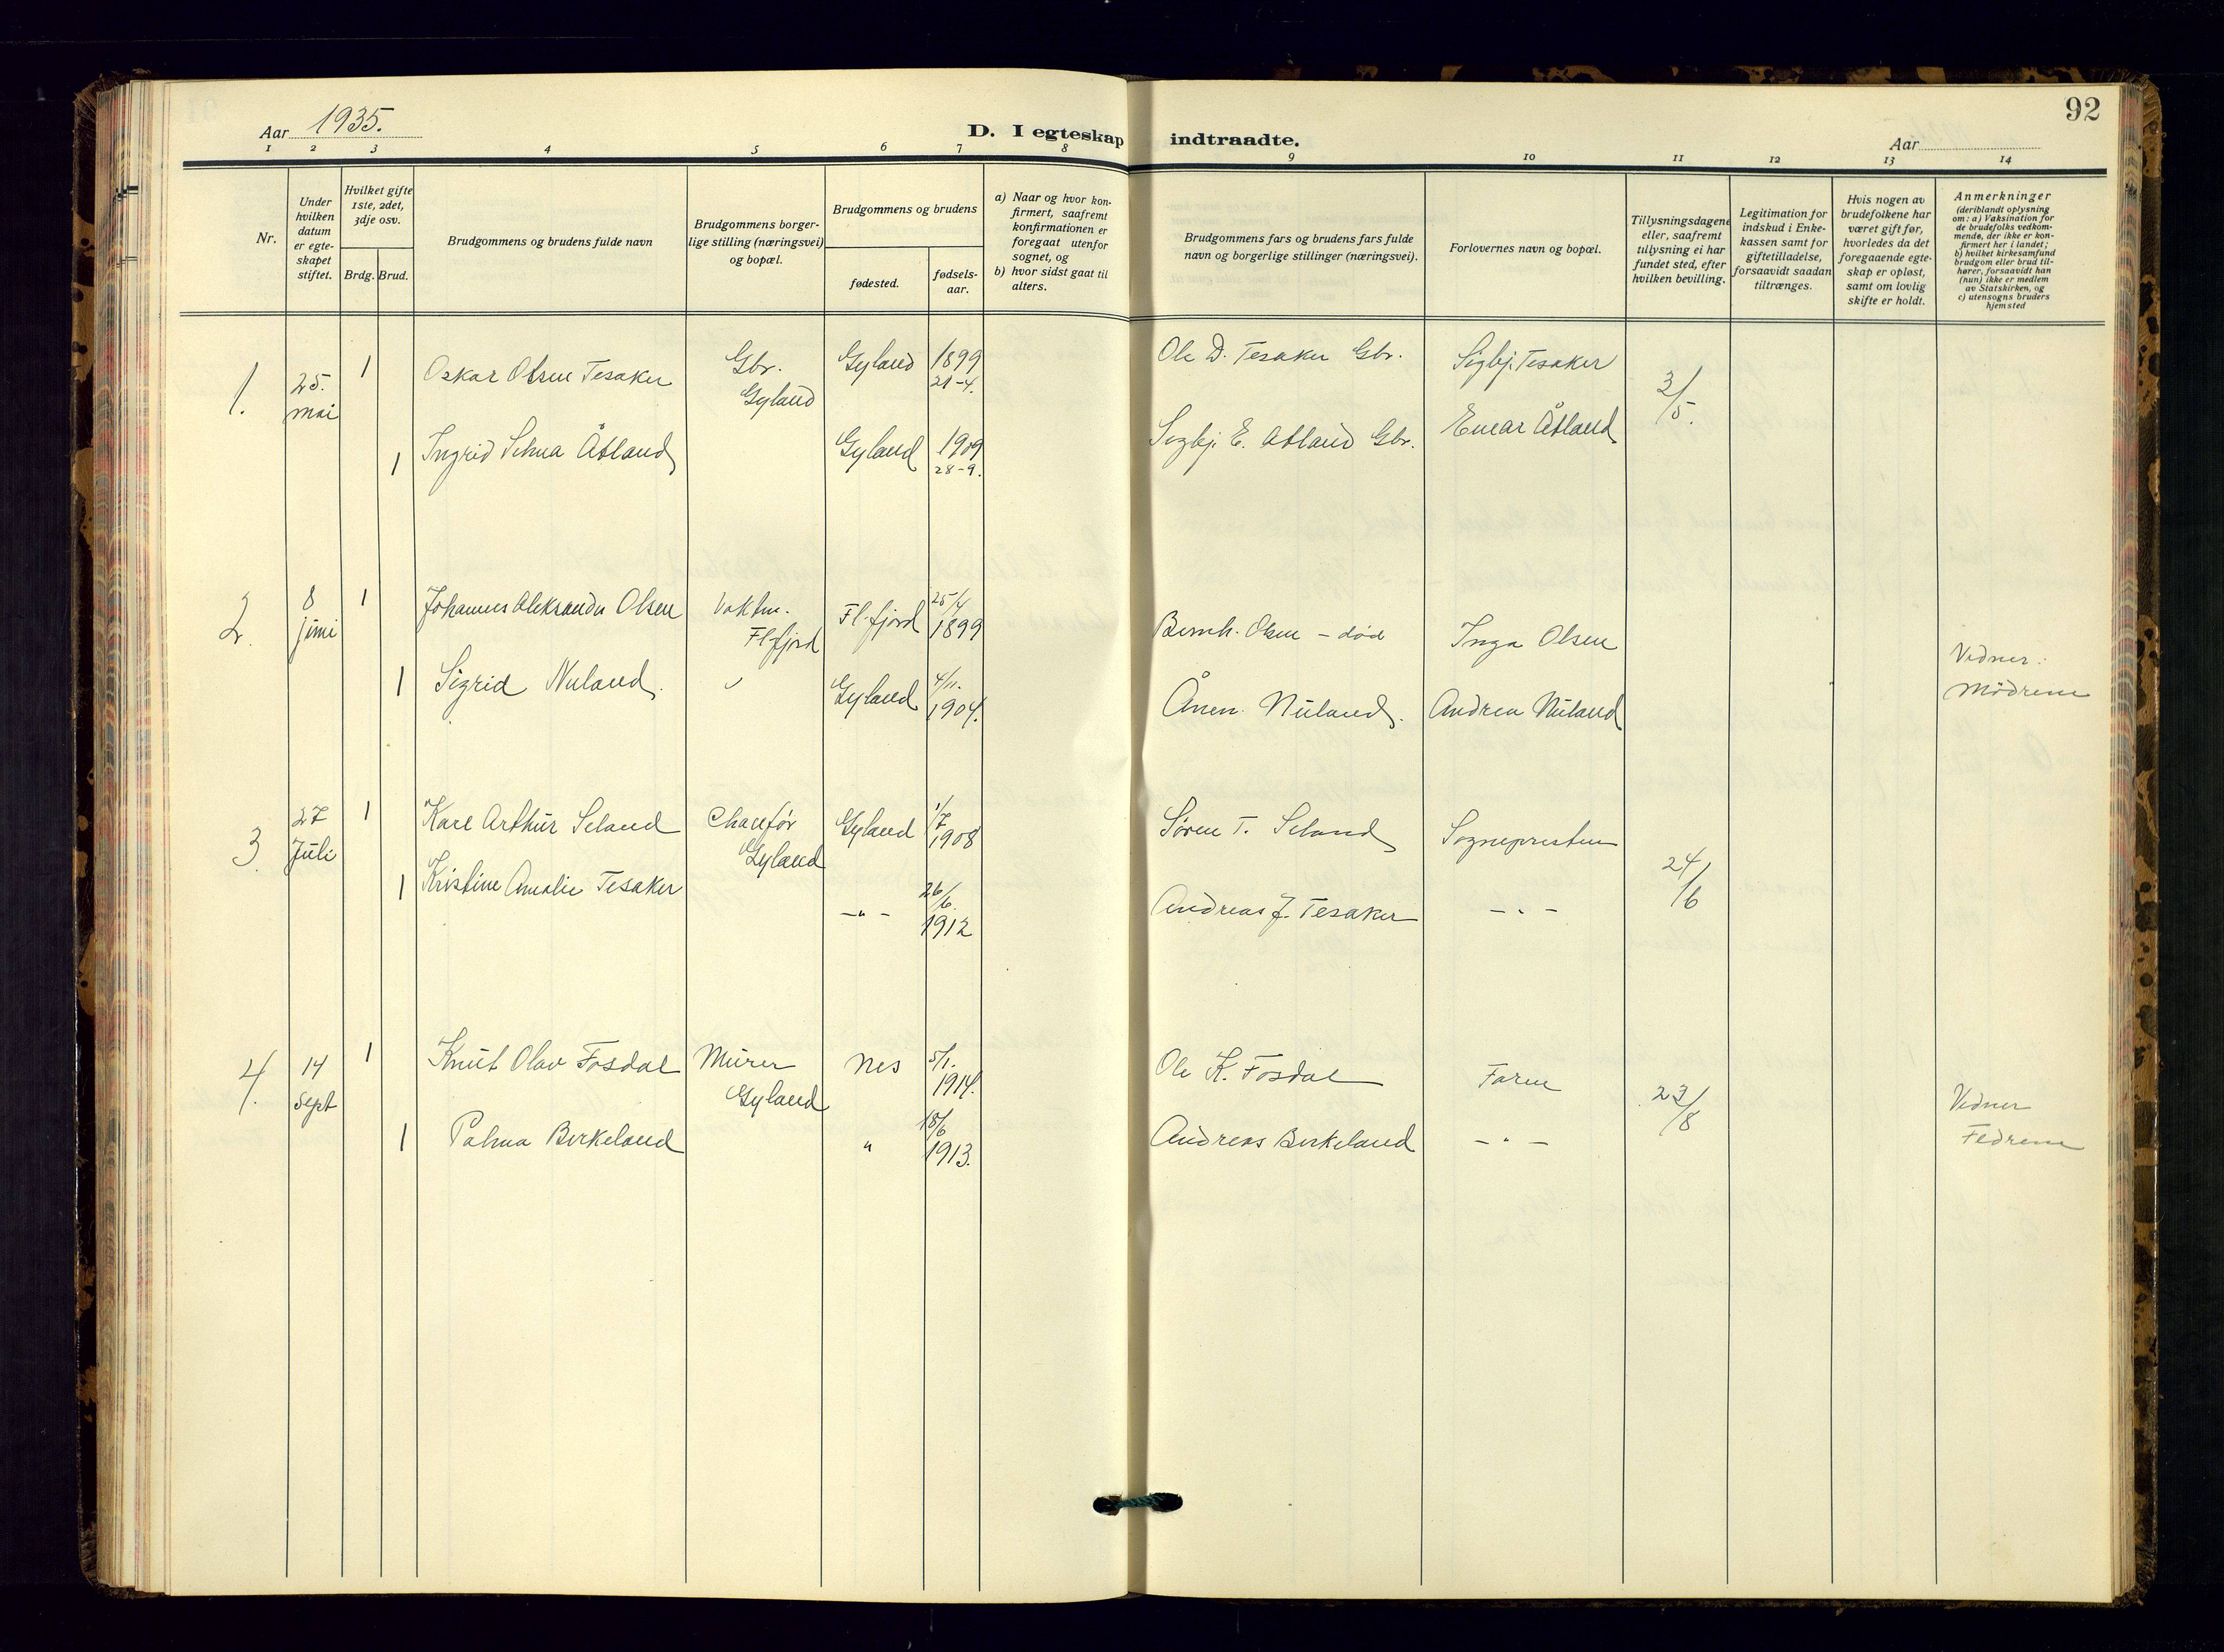 92
Aar 1935.
D. I egteskap indtraadte.
Aar
1 2 3 4 5 6 7 8 9 10 11 12 13 14
Nr.
Under
hvilken
datum
er egte-
skapet
stiftet.
Hvilket gifte
1ste, 2det,
3dje osv.
Brdg. Brud.
Brudgommens og brudens fulde navn
Brudgommens borger-
lige stilling (næringsvei)
og bopæl.
Brudgommens og brudens
fødested.
fødsels-
aar.
a) Naar og hvor kon-
firmert, saafremt
konfirmationen er
foregaat utenfor
sognet, og
b) hvor sidst gaat til
alters.
Brudgommens fars og brudens fars fulde
navn og borgerlige stillinger (næringsvei).
Forlovernes navn og bopæl.
Tillysningsdagene
eller, saafremt
tillysning ei har
fundet sted, efter
hvilken bevilling.
Legitimation for
indskud i Enke-
kassen samt for
giftetilladelse,
forsaavidt saadan
tiltrænges.
Hvis nogen av
brudefolkene har
været gift før,
hvorledes da det
foregaaende egte-
skap er opløst,
samt om lovlig
skifte er holdt.
Anmerkninger
(deriblandt oplysning
om: a) Vaksination for
de brudefolks vedkom-
mende, der ikke er kon-
firmert her i landet;
b) hvilket kirkesamfund
brudgom eller brud til-
hører, forsaavidt han
(hun) ikke er medlem
av Statskirken, og
c) utensogns bruders
hjemsted
1. 25. mai 1 Oskar Olsen Tesaker Gbr. Gyland Gyland 1899 21-4. Ole D. Tesaker Gbr. Sigbj. Tesaker 3/5.
1 Ingrid Selma Åtland Gyland 1909 28-9. Sigbj. E. Åtland Gbr. Einar Åtland
2. 8 juni 1 Johannes Aleksander Olsen Vaktm. Fl.fjord Fl.fjord 25/4 1899 Bernh. Olsen - død Inga Olsen
1 Sigrid Nuland. Gyland 4/11. 1904. Ånen Nuland. Andrea Nuland
Vidner:
Mødrene
3. 27 Juli 1 Karl Arthur Seland Chaufør Gyland Gyland 1/7 1908 Søren T. Seland Sognepresten 24/6
1 Kristine Amalie Tesaker -"- 26/6. 1912 Andreas J. Tesaker -"-
4. 14 Sept 1 Knut Olav Fosdal Murer Gyland Nes 5/1. 1914. Ole K. Fosdal Faren 23/8
1 Palma Birkeland " 18/6 1913. Andreas Birkeland -"-
Vidner
Fedrene